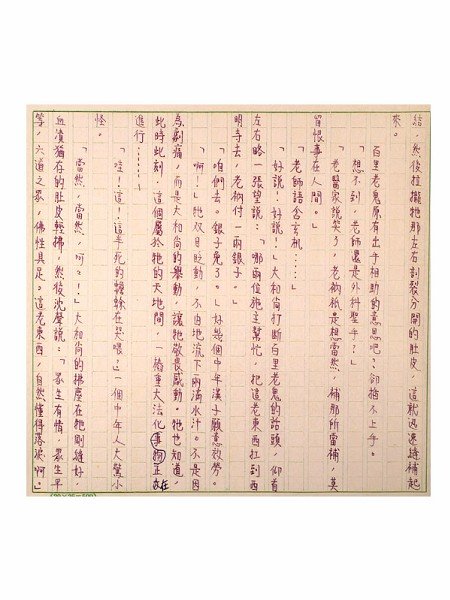 結，然後拉攏牠那左右割裂分開的肚皮，這就迅速縫補起
來。
百里老鬼原有出手相助的意思吧？卻插不上手。
「想不到，老師還是外科聖手？」
「老醫家說笑了，老衲祇是想當然，補那所當補，莫
留恨事在人間。」
「老師語含玄机……」
「好說！好說！」大和尚打斷百里老鬼的話頭，仰首
左右略一張望說：「哪兩位施主幫忙，把這老東西扛到西
明寺去，老衲付一兩銀子。」
「咱們去。銀子免了。」好幾個中年漢子願意效勞。
「啊！」牠双目眨動，不由地流下兩滴水汁。不是因
為劇痛，而是大和尚的舉動，讓牠敬畏感動。牠也知道，
此時此刻，這個屬於牠的天地間，一樁重大法化事物正在
進行……
「哇！這！這半死的　　在哭喂？」一個中年人大驚小
怪。
「當然，當然，呵呵！」大和尚的拂塵在牠剛縫好，
血漬猶存的肚皮輕拂，然後沈聲說：「眾生有情，眾生平
等，六道之眾，佛性具足。這老東西，自然懂得落淚啊。」